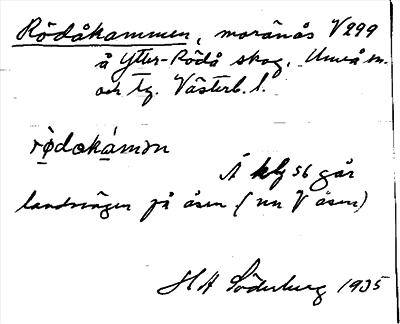 Rödåkammen, moränås V 299
å Ytter-Rödå skog, Umeå sn.
och tg. Västerb. l.
rødɔkámən
Å klj 56 går
landsvägen på åsen (nu V åsen)
H A Söderberg 1935